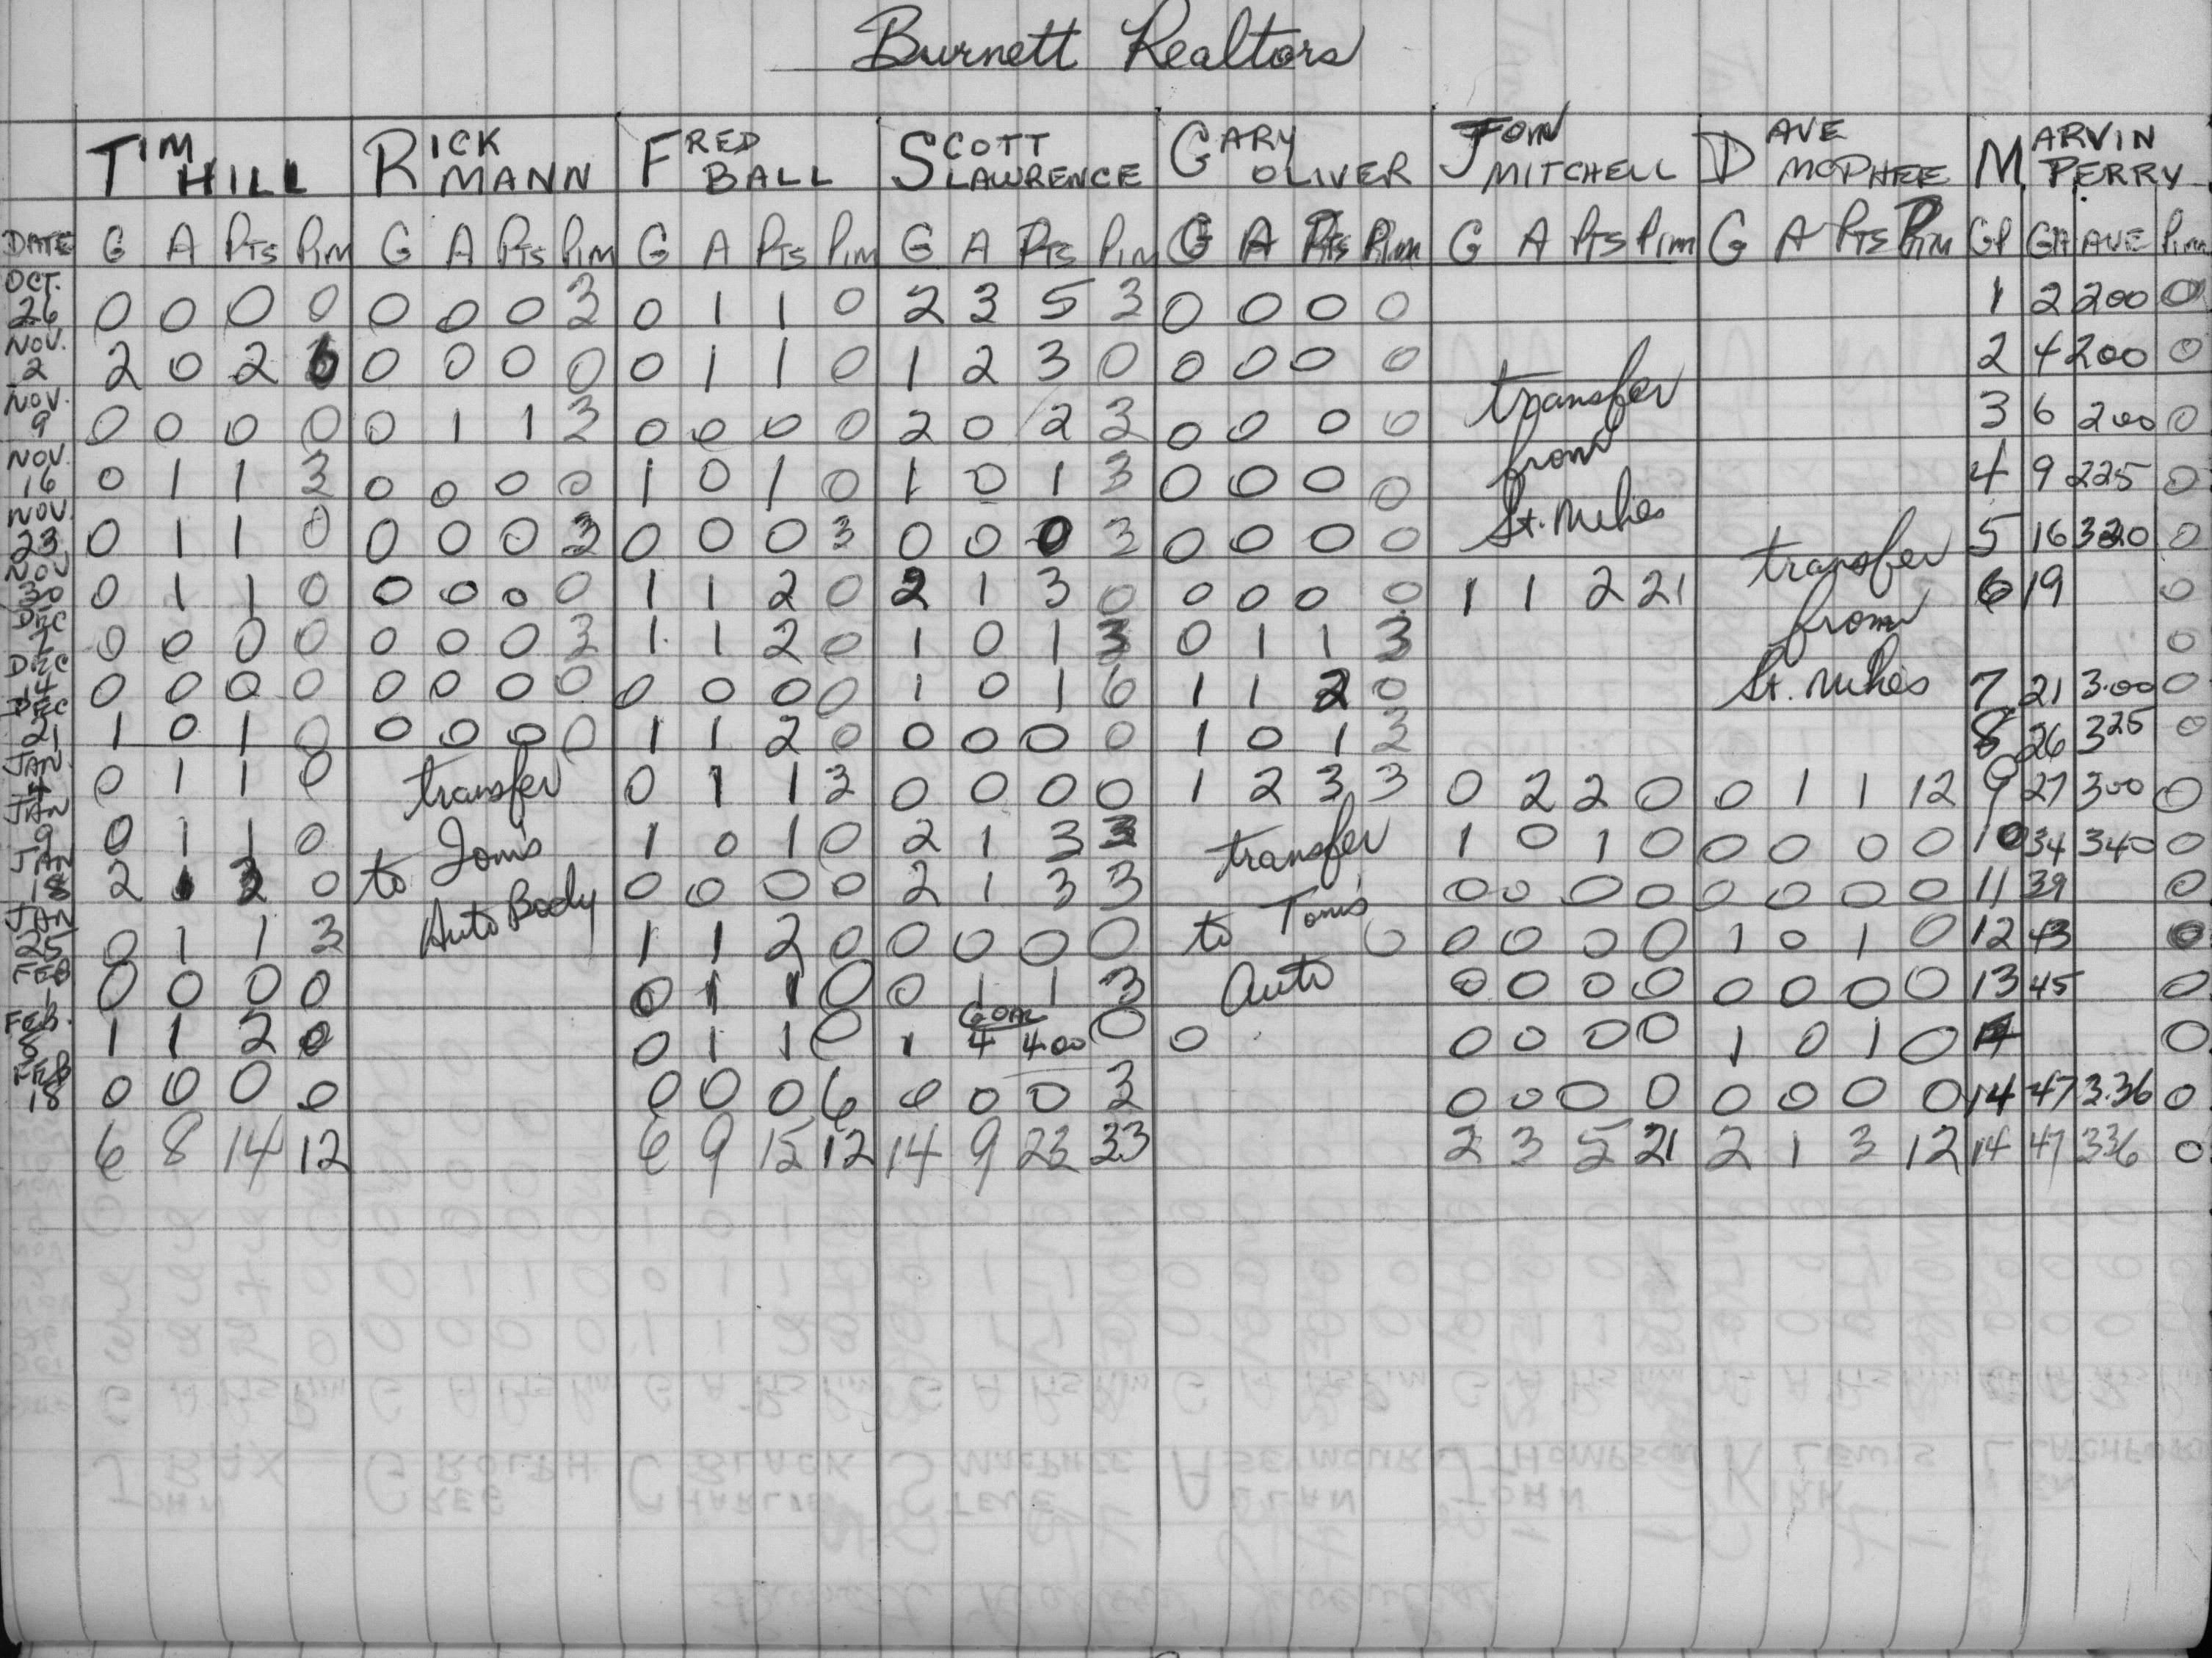 Burnett Realtors
TIM HILL RICK MANN FRED BALL SCOTT LAWRENCE GARY OLIVER JOHN MITCHELL DAVE MCPHEE MARVIN PERRY
DATE G A Pts Pim G A Pts Pim G A Pts Pim G A Pts Pim G A Pts Pim G A Pts Pim G A Pts Pim GP GA AVE Pim
OCT. 26 0 0 0 0 0 0 0 3 0 1 1 0 2 3 5 3 0 0 0 0 1 2 200 0
NOV. 2 2 0 2 6 0 0 0 0 0 1 1 0 1 2 3 0 0 0 0 0 2 4 200 0
NOV. 9 0 0 0 0 0 1 1 3 0 0 0 0 2 0 2 3 0 0 0 0 transfer 3 6 200 0
NOV. 16 0 1 1 3 0 0 0 0 1 0 1 0 1 0 1 3 0 0 0 0 from 4 9 225 0
NOV. 23 0 1 1 0 0 0 0 3 0 0 0 3 0 0 0 3 0 0 0 0 St. Mikes transfer 5 16 320 0
NOV 30 0 1 1 0 0 0 0 0 1 1 2 0 2 1 3 0 0 0 0 0 1 1 2 21 from 6 19 0
DEC 7 0 0 0 0 0 0 0 3 1 1 2 0 1 0 1 3 0 1 1 3 0
DEC 14 0 0 0 0 0 0 0 0 0 0 0 0 1 0 1 6 1 1 2 0 St. Mikes 7 21 3.00 0
DEC 21 1 0 1 0 0 0 0 0 1 1 2 0 0 0 0 0 1 0 1 3 8 26 325 0
JAN. 4 0 1 1 0 transfer 0 1 1 3 0 0 0 0 1 2 3 3 0 2 2 0 0 1 1 12 9 27 300 0
JAN 9 0 1 1 0 to Tom's 1 0 1 0 2 1 3 3 transfer 1 0 1 0 0 0 0 0 10 34 340 0
JAN 18 2 1 3 0 Auto Body 0 0 0 0 2 1 3 3 to Tom's 0 0 0 0 0 0 0 0 11 39 0
JAN 25 0 1 1 3 1 1 2 0 0 0 0 0 Auto 0 0 0 0 0 1 0 1 0 12 43 0
FEB 1 0 0 0 0 0 1 1 0 0 1 1 3 0 0 0 0 0 0 0 0 13 45 0
FEB. 8 1 1 2 0 0 1 1 0 1 GOAL 4 4.00 0 0 0 0 0 0 1 0 1 0 0
FEB 18 0 0 0 0 0 0 0 6 0 0 0 3 0 0 0 0 0 0 0 0 14 47 3.36 0
6 8 14 12 6 9 15 12 14 9 23 33 2 3 5 21 2 1 3 12 14 47 336 0